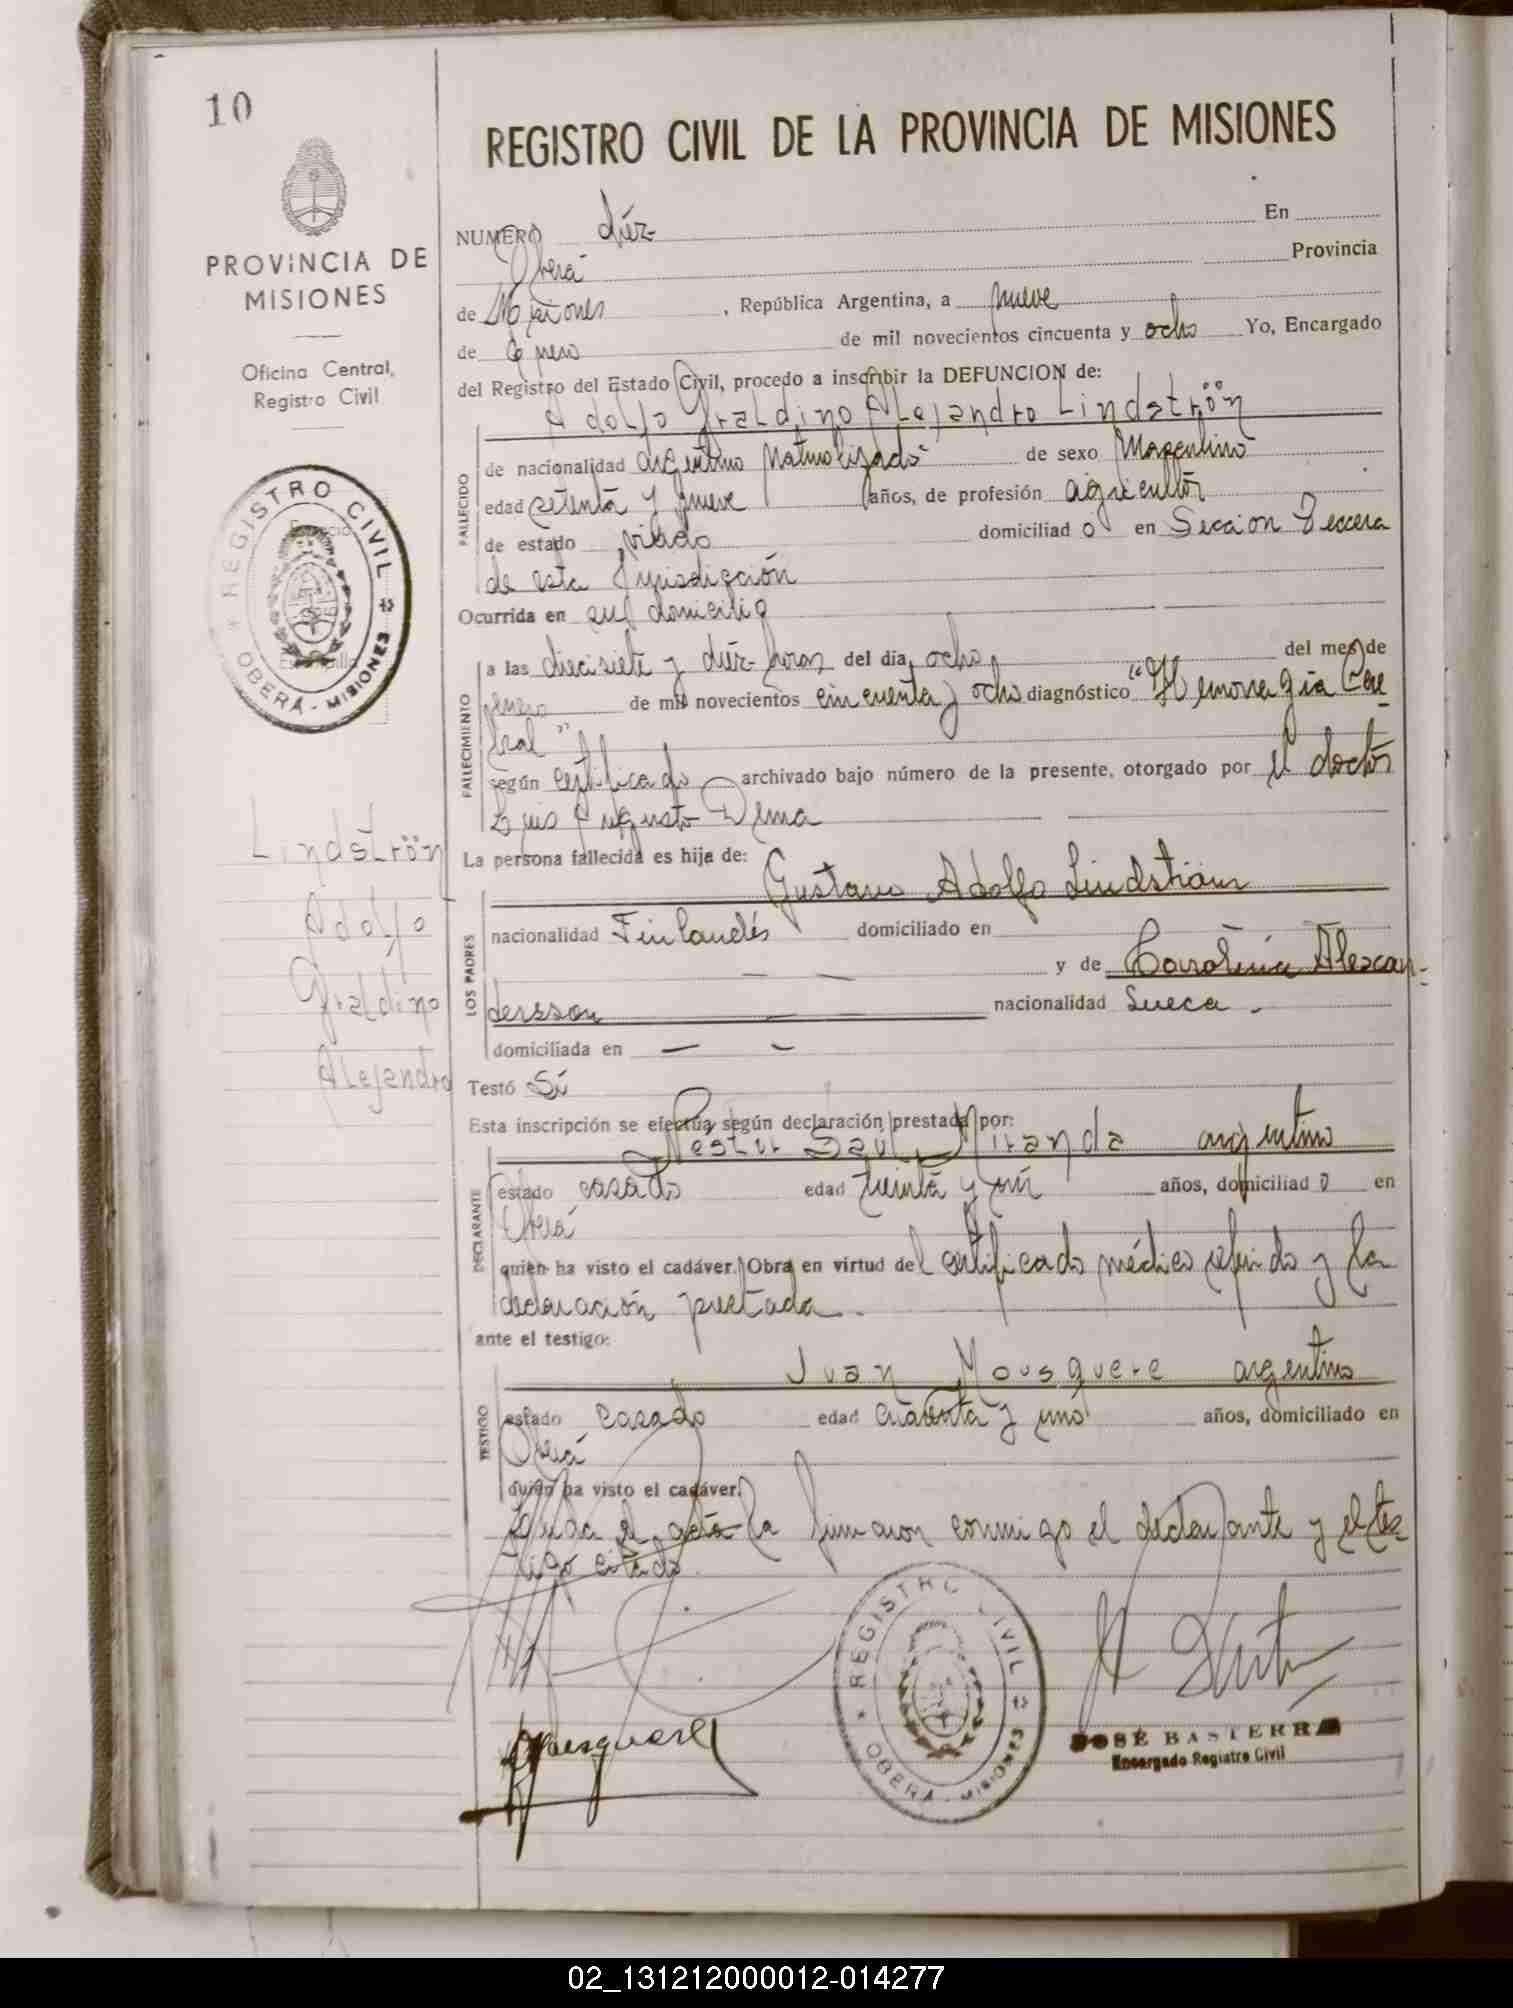 10
REGISTRO CIVIL DE LA PROVINCIA DE MISIONES
PROVINCIA DE
MISIONES
Oficina Central,
Registro Civil
REGISTRO CIVIL
OBERÁ - MISIONES
NUMERO diez En
Oberá Provincia
de Misiones, República Argentina, a nueve
de Enero de mil novecientos cincuenta y ocho Yo, Encargado
del Registro del Estado Civil, procedo a inscribir la DEFUNCION de:
Adolfo Graldino Alejandro Lindströn
FALLECIDO
de nacionalidad argentino Naturalizado de sexo Masculino
edad setenta y nueve años, de profesión agricultor
de estado viudo domiciliado en Sección Tercera
de esta Jurisdicción
Ocurrida en su domicilio
FALLECIMIENTO
a las diecisiete y diez horas del día ocho del mes de
enero de mil novecientos cincuenta y ocho diagnóstico "Hemorragia Cere-
bral"
según certificado archivado bajo número de la presente, otorgado por el doctor
Luis Augusto Dema
La persona fallecida es hija de:
Gustavo Adolfo Lindström
LOS PADRES
nacionalidad Finlandés domiciliado en
— — y de Carolina Alexan-
dersson — — nacionalidad Sueca.
domiciliada en — —
Lindströn
Adolfo
Graldino
Alejandro
Testó Sí
Esta inscripción se efectúa según declaración prestada por:
Nestor Saul Miranda argentino
DECLARANTE
estado casado edad treinta y un años, domiciliado en
Oberá
quien ha visto el cadáver. Obra en virtud del certificado médico referido y la
declaración prestada.
ante el testigo:
Juan Mousquere argentino
TESTIGO
estado casado edad cuarenta y uno años, domiciliado en
Oberá
quien ha visto el cadáver.
Leída el acta la firmaron conmigo el declarante y el tes-
tigo citado.
REGISTRO CIVIL
OBERÁ - MISIONES
JOSÉ BASTERRA
Encargado Registro Civil
02_131212000012-014277